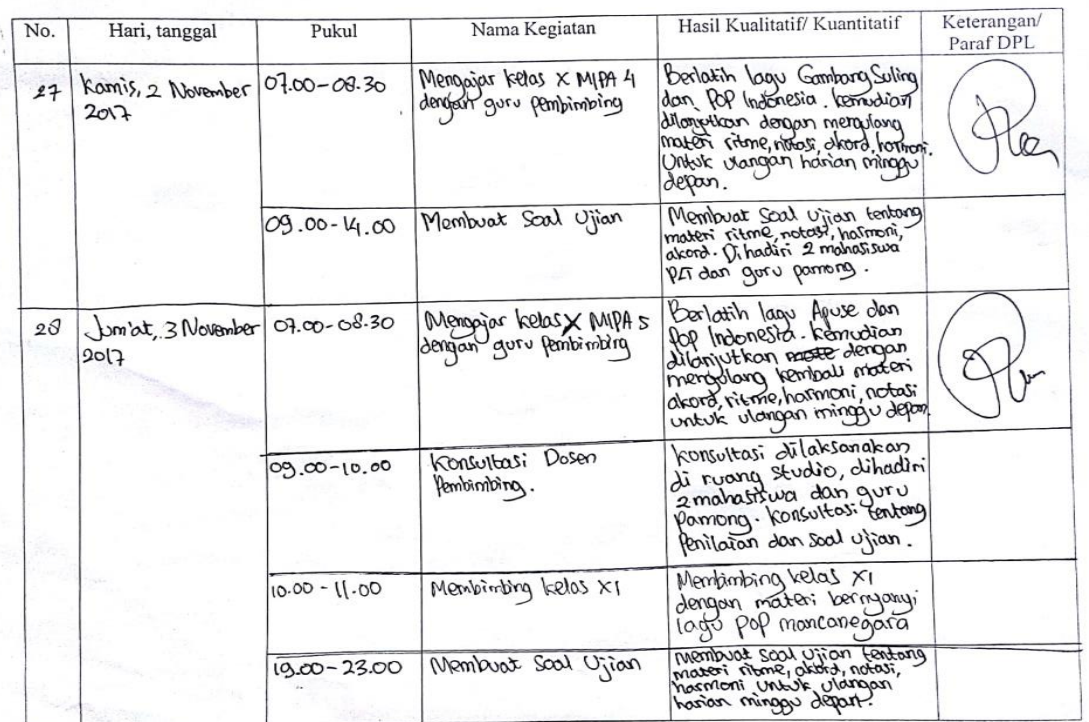 No. Hari, tanggal Pukul Nama Kegiatan Hasil Kualitatif/ Kuantitatif Keterangan/
Paraf DPL
27 Kamis, 2 November 07.00-08.30 Mengajar kelas X MIPA 4 Berlatih lagu Gambang Suling
2017 dengan guru Pembimbing dan POP Indonesia. kemudian
dilanjutkan dengan mengulang
materi ritme, notasi, akord, harmoni.
Untuk ulangan harian minggu
depan.
09.00-14.00 Membuat Soal Ujian Membuat Soal Ujian tentang
materi ritme, notasi, harmoni,
akord. Dihadiri 2 mahasiswa
PLT dan guru pamong.
28 Jum'at, 3 November 07.00-08.30 Mengajar kelas X MIPA 5 Berlatih lagu Apuse dan
2017 dengan guru Pembimbing Pop Indonesia. kemudian
dilanjutkan dengan
mengulang kembali materi
akord, ritme, harmoni, notasi
untuk ulangan minggu depan
09.00-10.00 Konsultasi Dosen Konsultasi dilaksanakan
Pembimbing. di ruang studio, dihadiri
2 mahasiswa dan guru
Pamong. Konsultasi tentang
Penilaian dan soal ujian.
10.00-11.00 Membimbing kelas XI Membimbing kelas XI
dengan materi bernyanyi
lagu POP mancanegara
19.00-23.00 Membuat Soal Ujian Membuat soal ujian tentang
materi ritme, akord, notasi,
harmoni untuk ulangan
harian minggu depan.